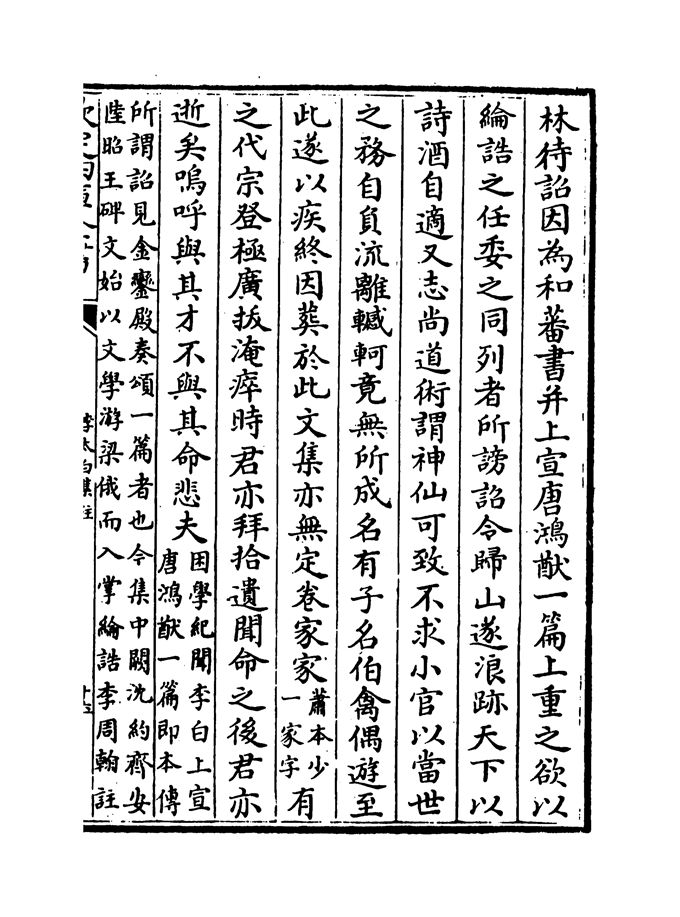 林待詔因為和蕃書并上宣唐鴻猷一篇上重之欲以
綸誥之任委之同列者所謗詔令歸山遂浪跡天下以
詩酒自適又志尚道術謂神仙可致不求小官以當世
之務自負流離轗軻竟無所成名有子名伯禽偶遊至
此遂以疾終因葬於此文集亦無定卷家家
蕭本少
一家字
有
之代宗登極廣拔淹瘁時君亦拜拾遺聞命之後君亦
逝矣嗚呼與其才不與其命悲夫
困學紀聞李白上宣
唐鴻猷一篇即本傳
所謂詔見金鑾殿奏頌一篇者也今集中闕沈約齊安
陸昭王碑文始以文學游梁俄而入掌綸誥李周翰註
李太白集註